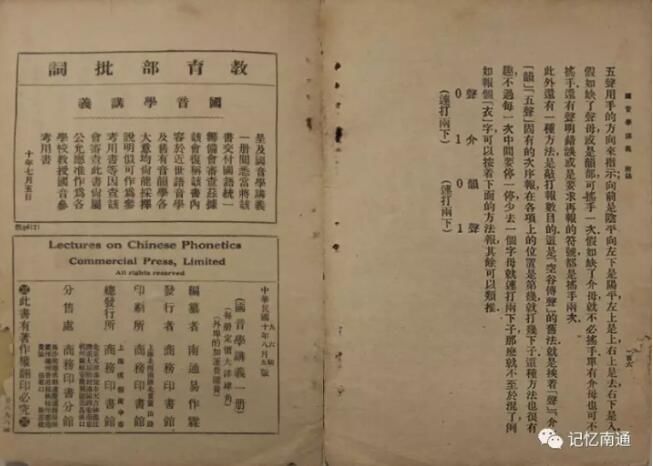 國音學講義 附錄
一百六
五聲用手的方向來指示:向前是陰平,向左下是陽平,左上是上,右上是去,右下是入.
假如缺了聲母,或是韻部,可搖手一次;假如缺了介母,就不必搖手;單有介母也可不
搖手;還有聲明錯誤或是要求再報的符號,都是搖手兩次.
此外還有一種方法,是敲打報數目的;這是「空谷傳聲」的舊法;就是挨着「聲」「介」
「韻」「五聲」固有的次序報;在各項上的位置是第幾就打幾下子;這種方法也很有
趣;不過每一次中間要停一停;少去一個字母就連打兩下子,那麼就不至於混了.例
如報個「衣」字,可以按着下面的方法報,其餘可以類推.
聲 介 韻 聲
0 1 0 1
(連打兩下) (連打兩下)
教育部批詞
國音學講義
呈及國音學講義
一册閱悉當將該
書交付國語統一
籌備會審查茲據
該會復稱該書內
容於近世語音學
及舊有音韻學各
大意均尙能採擇
說明似可作爲參
考用書等因查該
會審查此書尙屬
公允應准作爲各
學校敎授國音參
考用書
十年七月五日
Lectures on Chinese Phonetics
Commercial Press, Limited
All rights reserved
中華民國十年八月初版
(國音學講義一册)
(每册定價大洋肆角)
(外埠酌加運費匯費)
編纂者 南通易作霖
發行者 商務印書館
印刷所 商務印書館
總發行所 商務印書館
分售處 商務印書分館
此書有著作權翻印必究
记忆南通